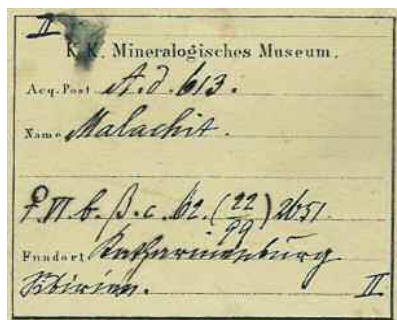 II
K. K. Mineralogisches Museum.
Acq. Post A. d. 613.
Name Malachit.
VI. b. β. c. 62. (22/99) 2651.
Fundort Katharinenburg
Sibirien. II